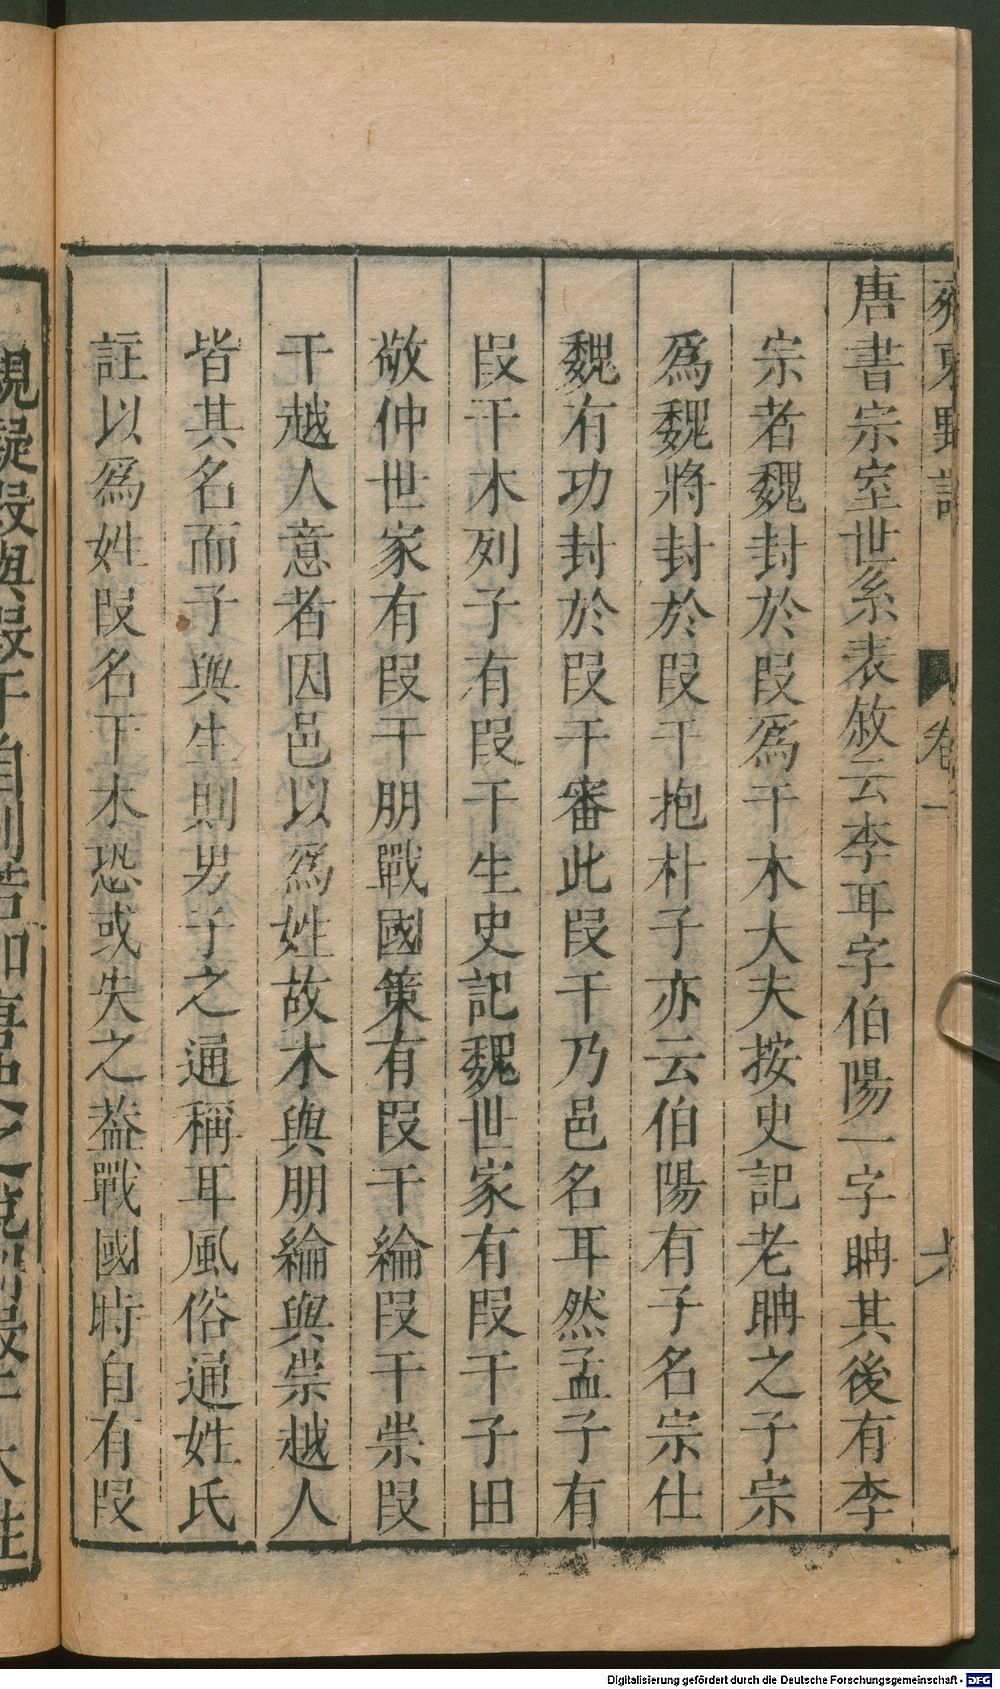 唐書宗室世系表敘云李耳字伯陽一字聃其後有李
宗者魏封於段爲干木大夫按史記老聃之子宗
爲魏將封於段干抱朴子亦云伯陽有子名宗仕
魏有功封於段干審此段干乃邑名耳然孟子有
段干木列子有段干生史記魏世家有段干子田
敬仲世家有段干朋戰國策有段干綸段干崇段
干越人意者因邑以爲姓故木與朋綸與崇越人
皆其名而子與生則男子之通稱耳風俗通姓氏
註以爲姓段名干木恐或失之葢戰國時自有段
卷一
Digitalisierung gefördert durch die Deutsche Forschungsgemeinschaft - DFG